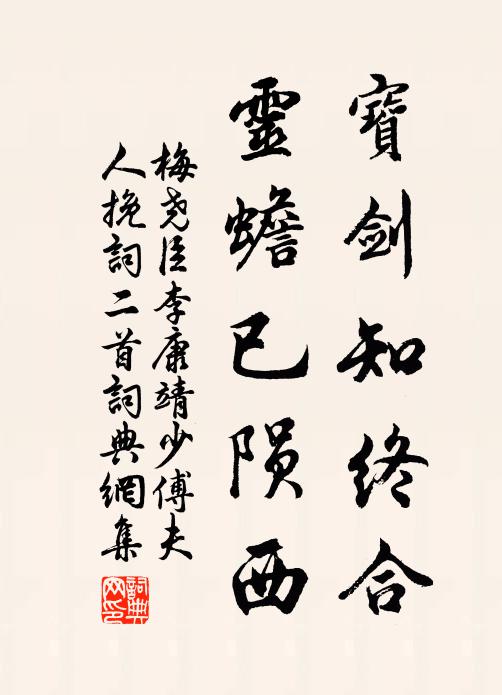 寶剑知终合
靈蟾已陨西
梅尧臣李康靖少傅夫
人挽詞二首詞典網集
詞典网印